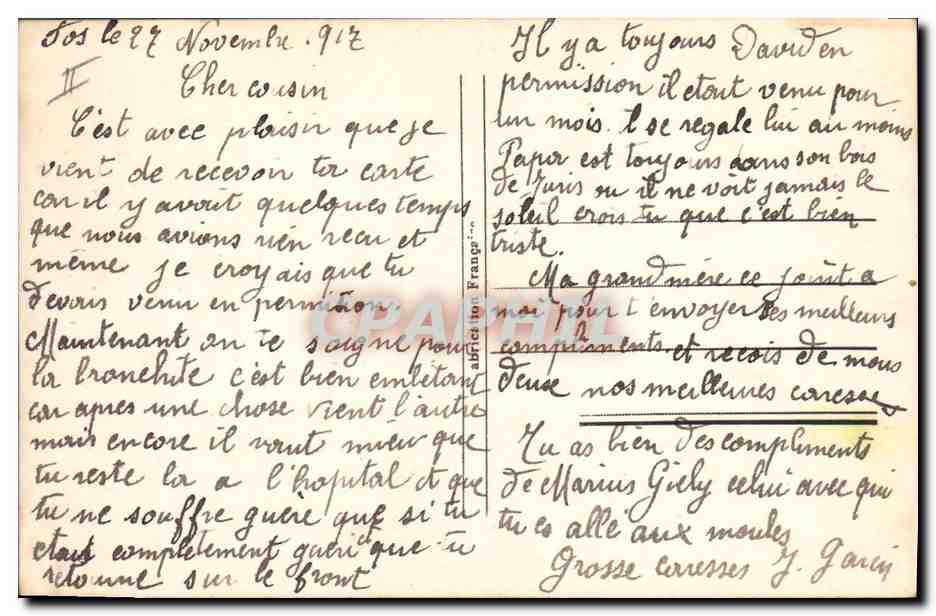 Fos le 27 Novembre .917
II
Cher cousin
C'est avec plaisir que je
vient de recevoir ta carte
car il y avait quelques temps
que nous avions rien recu et
même je croyais que tu
devais venu en permition
Maintenant on te soigne pour
la bronchite c'est bien embêtant
car apres une chose vient l'autre
mais encore il vaut mieu que
tu reste la a l'hopital et que
tu ne souffre guère que si tu
etais complètement gueri et que tu
retourne sur le front
abrication Française
Il y a toujours David en
permission il etait venu pour
un mois. l se regale lui au moins
Papa est toujours dans son bois
de Juris ou il ne voit jamais le
soleil crois tu que c'est bien
triste.
Ma grand mère ce joint a
moi pour t'envoyer ses meilleurs
compliments et recois de nous
deux nos meilleures caresses
Tu as bien des compliments
de Marius Giely celui avec qui
tu es allé aux moules
Grosse caresses J. Garcin
CPAPHIL